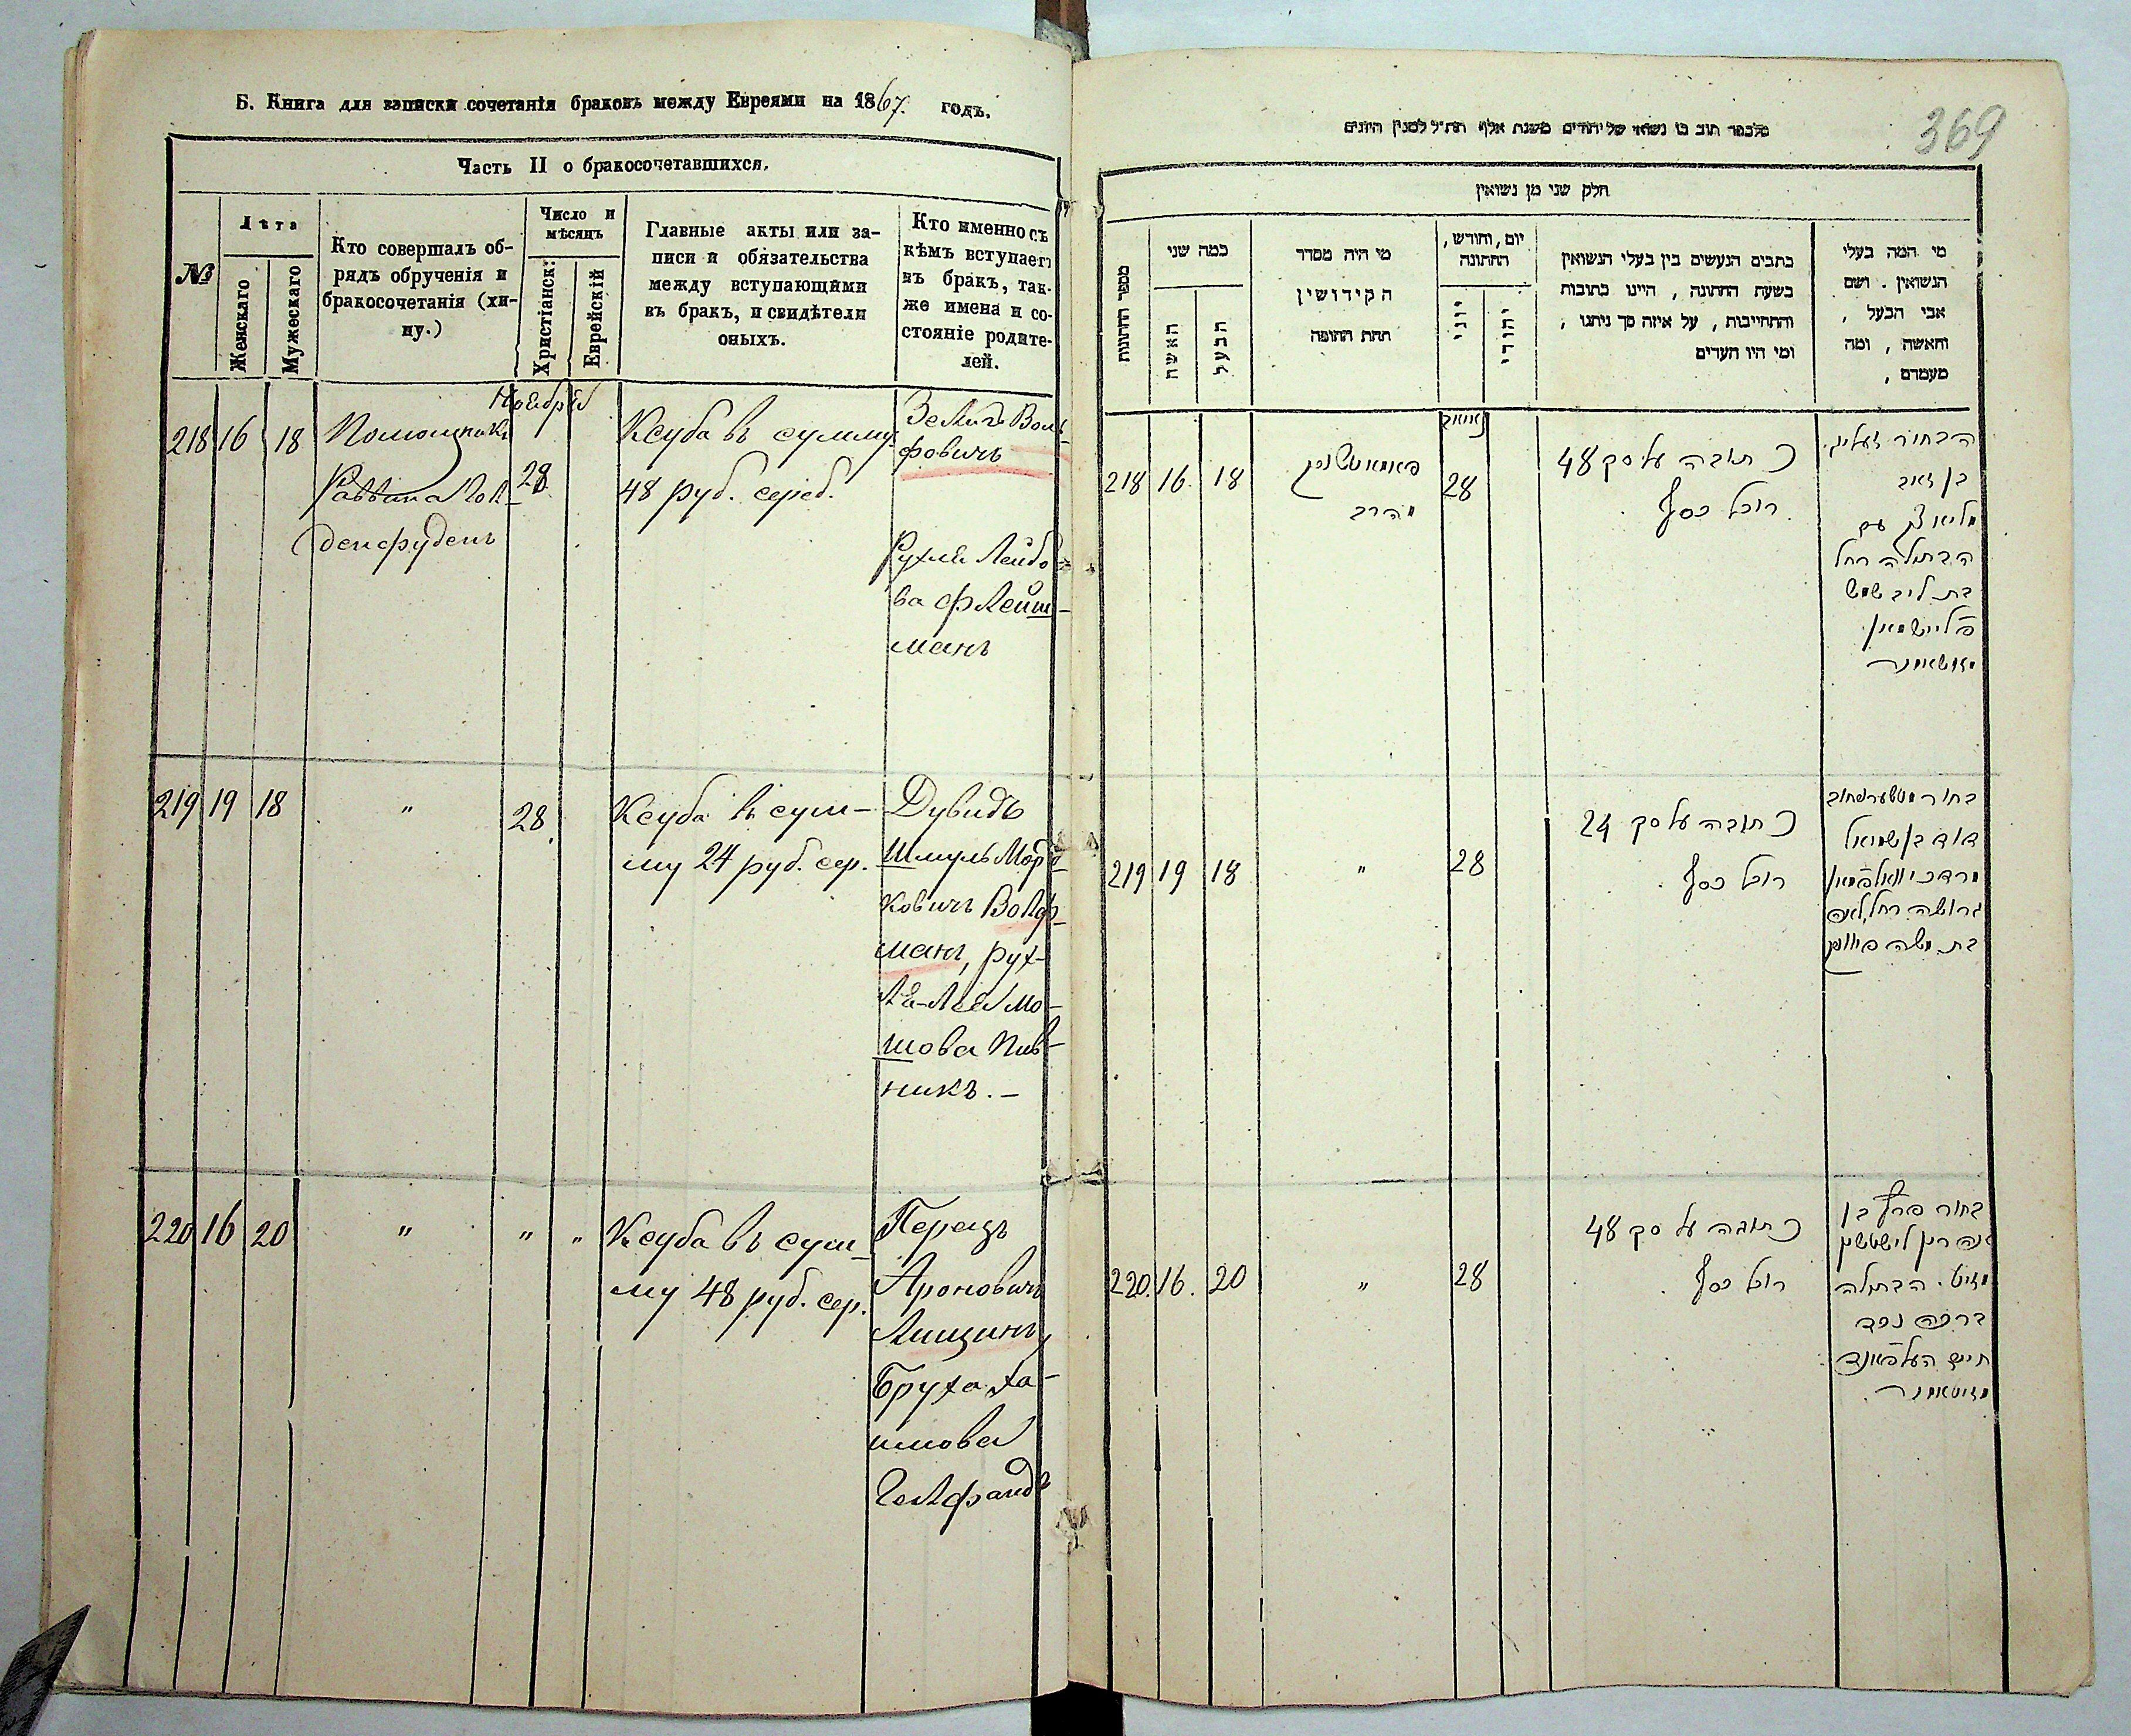 Б. Книга для записки сочетанія браковъ между Евреями на 1867. годъ.
Часть II о бракосочетавшихся.
№
Лѣта
Женскаго
Мужескаго
Кто совершалъ об-
рядъ обрученія и
бракосочетанія (хи-
пу.)
Число и
мѣсяцъ
Христіанск:
Еврейскій
Главные акты или за-
писи и обязательства
между вступающими
въ бракъ, и свидѣтели
оныхъ.
Кто именно съ
кѣмъ вступаетъ
въ бракъ, так-
же имена и со-
стояніе родите-
лей.
Ноября
218 16 18
Помощникъ
Раввина
28
Ксуба въ сумму
48 руб. сереб.
Зелигъ Воль-
фовичъ
Рухля Лейбо-
ва Флейш-
манъ
219 19 18
"
28
Ксуба въ сум-
му 24 руб. сер.
Дувидъ
Шмуль Мордъ-
ковичъ Волф-
манъ, рух-
ля-Лея Мо-
шова Пив-
никъ. -
220 16 20
" " "
Ксуба въ сум-
му 48 руб. сер.
Перецъ
Ароновичъ
Лищинъ,
Бруха Ха-
имова
Гелфандъ
369
חלק שני מן נשואין
מספר החתונות
כמה שני
האשה
הבעל
מי היה מסדר
הקידושין
תחת החופה
יום, וחודש,
החתונה
יווני
יהודי
כתבים הנעשים בין בעלי הנשואין
בשעת החתונה , היינו כתובות
והתחייבות , על איזה סך ניתנו ,
ומי היו העדים
מי המה בעלי
הנשואין . ושם
אבי הבעל ,
והאשה , ומה
מעמדם ,
218 16. 18
הרב
28
כתובה על סך 48
רובל כסף
הבחור זעליג
בן זאב
עם
הבתולה רחל
בת ליב
פליישמאן
219 19 18
"
28
כתובה על סך 24
רובל כסף
בחור
דוד בן שמואל
מרדכי וואלפמאן
גרושה רחל לאה
בת משה פיווניק
220. 16. 20
"
28
כתובה על סך 48
רובל כסף
בחור פרץ בן
הבתולה
ברכה
חיים העלפאנד